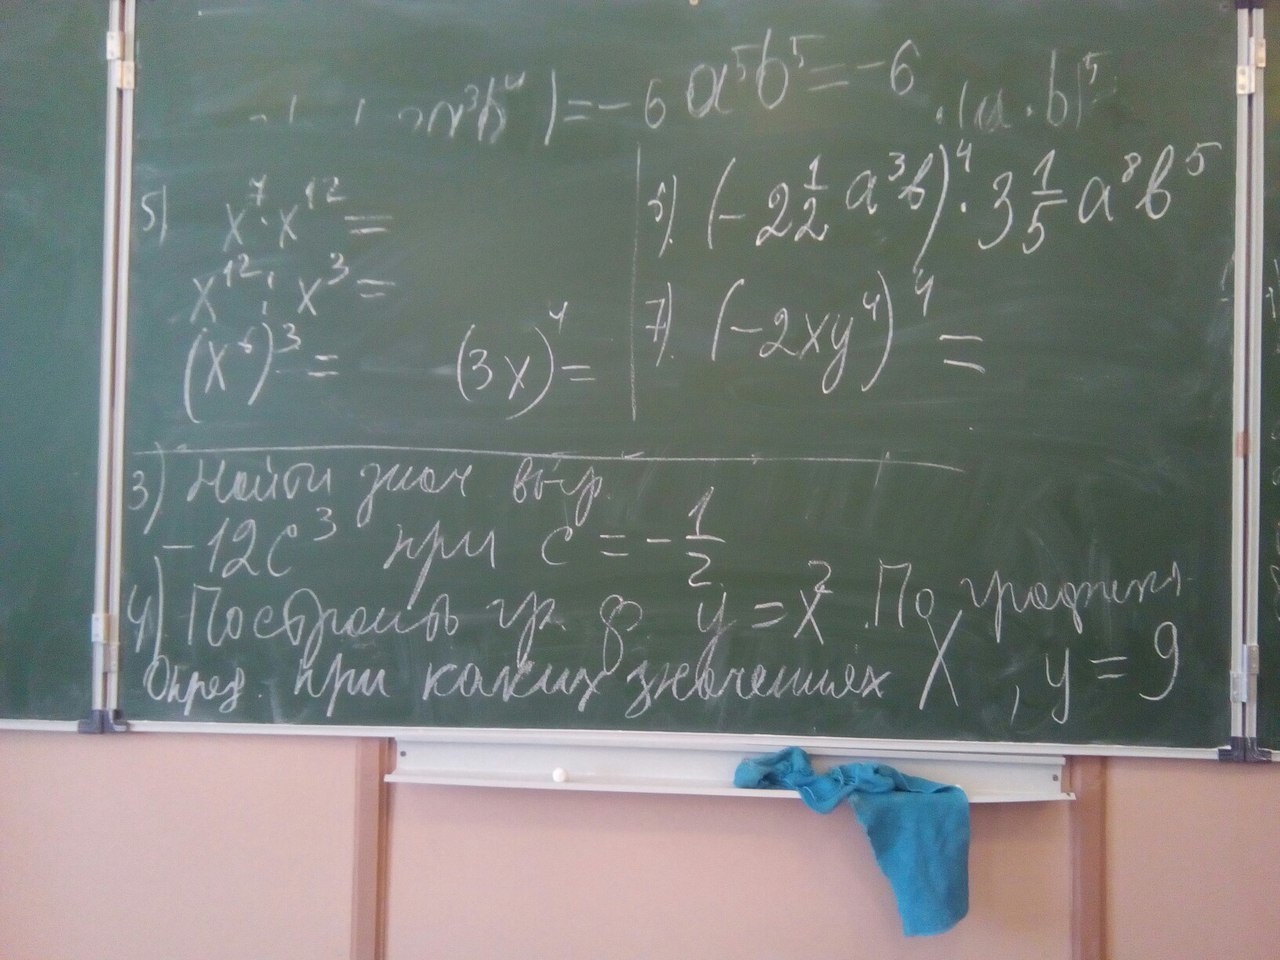 ) = -6 a⁵b⁵ = -6 · (a · b)⁵ =
5) x⁷ · x¹² =
x¹² : x³ =
(x⁶)³ = (3x)⁴ =
6). (-2 1/2 a³b)⁴ · 3 1/5 a⁸b⁵
7). (-2xy⁴)⁴ =
3) Найти знач выр.
-12c³ при c = -1/2
4) Построить гр. ф y = x². По графику
Опред. при каких значениях X, y = 9